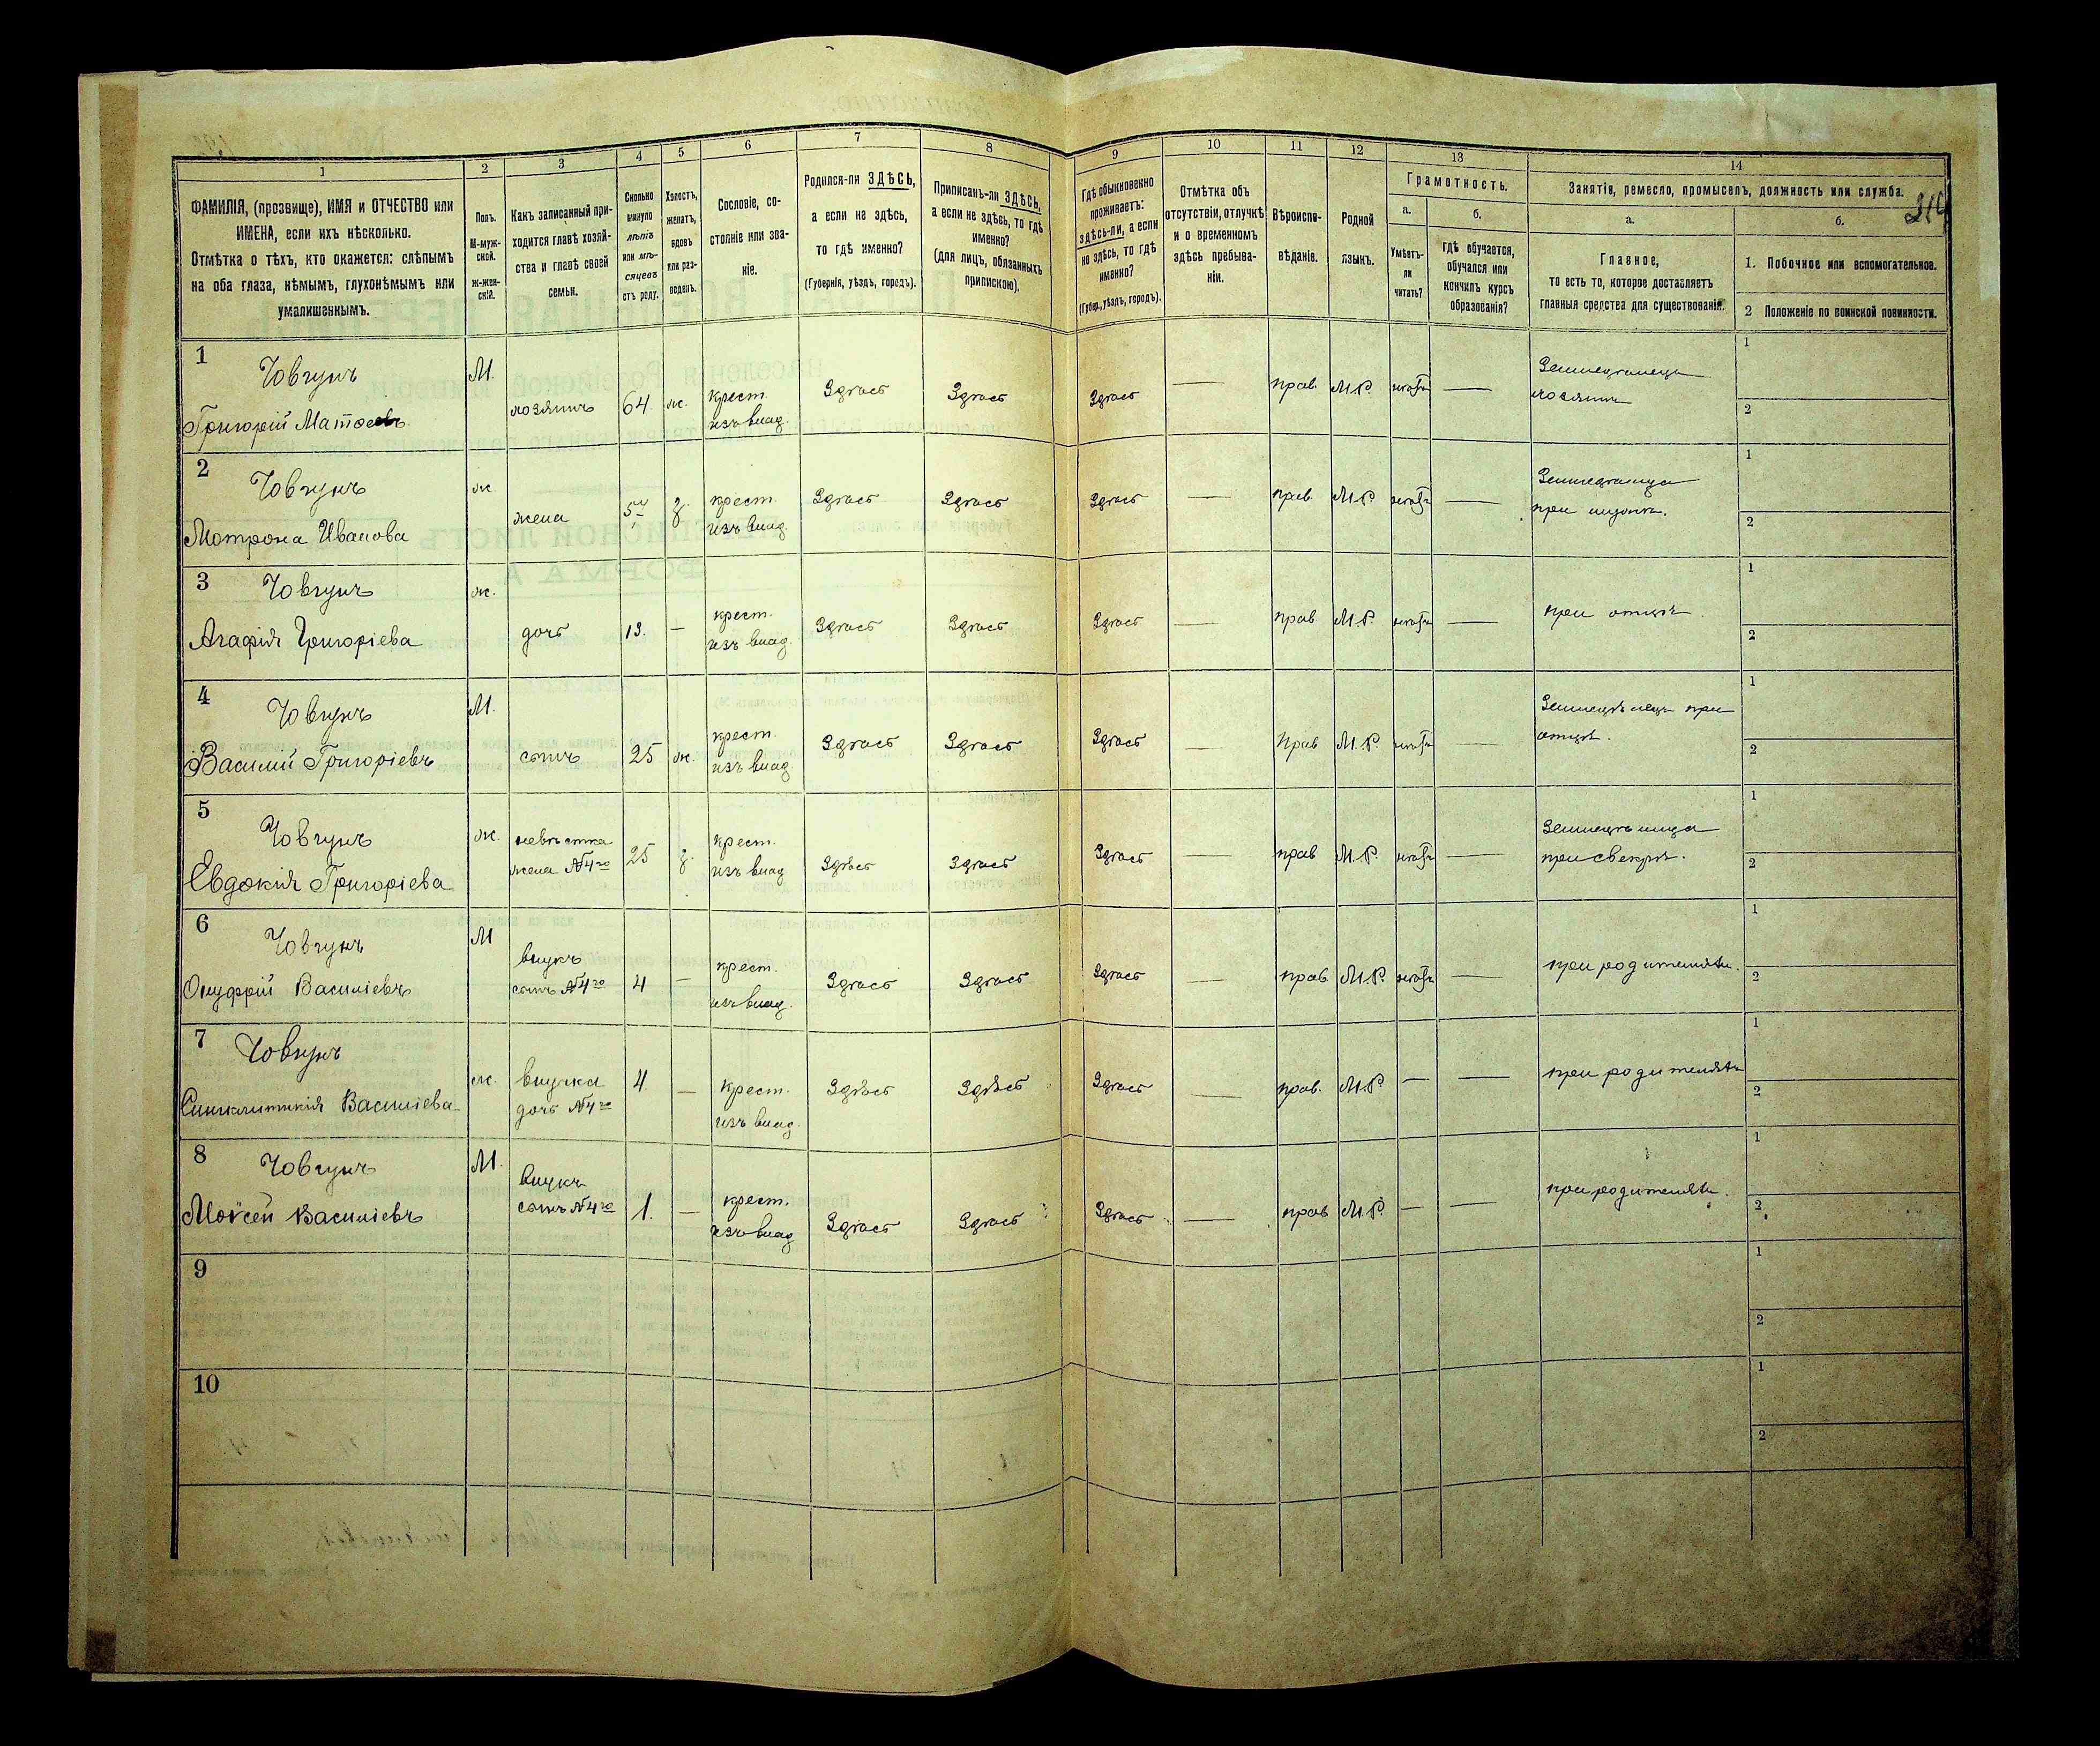 314
1
2
3
4
5
6
7
8
9
10
11
12
13
14
ФАМИЛІЯ, (прозвище), ИМЯ и ОТЧЕСТВО или
ИМЕНА, если ихъ нѣсколько.
Отмѣтка о тѣхъ, кто окажется: слѣпымъ
на оба глаза, нѣмымъ, глухонѣмымъ или
умалишеннымъ.
Полъ.
М-муж-
ской.
Ж-жен-
скій.
Какъ записанный при-
ходится главѣ хозяй-
ства и главѣ своей
семьи.
Сколько
минуло
лѣтъ
или мѣ-
сяцевъ
отъ роду.
Холостъ,
женатъ,
вдовъ
или раз-
веденъ.
Сословіе, со-
стояніе или зва-
ніе.
Родился-ли ЗДѢСЬ,
а если не здѣсь,
то гдѣ именно?
(Губернія, уѣздъ, городъ).
Приписанъ-ли ЗДѢСЬ,
а если не здѣсь, то гдѣ
именно?
(для лицъ, обязанныхъ
припискою).
Гдѣ обыкновенно
проживаетъ:
здѣсь-ли, а если
не здѣсь, то гдѣ
именно?
(Губер., уѣздъ, городъ).
Отмѣтка объ
отсутствіи, отлучкѣ
и о временномъ
здѣсь пребыва-
ніи.
Вѣроиспо-
вѣданіе.
Родной
языкъ.
Грамотность.
а.
Умѣетъ-
ли
читать?
б.
гдѣ обучается,
обучался или
кончилъ курсъ
образованія?
Занятія, ремесло, промыселъ, должность или служба.
а.
Главное,
то есть то, которое доставляетъ
главныя средства для существованія.
б.
1. Побочное или вспомогательное.
2 Положеніе по воинской повинности.
1
Човгунъ
Григорій Матѳеевъ
М.
хозяинъ
64
ж.
крест.
изъ влад.
Здѣсь
Здѣсь
Здѣсь
—
прав.
М.Р.
—
Земледѣлецъ
хозяинъ
1
2
2
Човгунъ
Мотрона Иванова
ж
жена
з.
крест
изъ влад.
Здѣсь
Здѣсь
Здѣсь
—
прав.
М.Р.
—
Земледѣлица
при мужѣ.
1
2
3
Човгунъ
Агафія Григоріева
ж.
дочь
13.
—
крест.
изъ влад.
Здѣсь
Здѣсь
Здѣсь
—
прав
М.Р.
—
при отцѣ
1
2
4
Човгунъ
Василій Григоріевъ
М.
сынъ
25
ж.
крест.
изъ влад.
Здѣсь
Здѣсь
Здѣсь
—
прав
М.Р.
—
Земледѣлецъ при
отцѣ.
1
2
5
Човгунъ
Евдокія Григоріева
ж.
невѣстка
жена №4го
25
з.
крест.
изъ влад
Здѣсь
Здѣсь
Здѣсь
—
прав
М.Р.
—
Земледѣлица
при свекрѣ.
1
2
6
Човгунъ
Онуфрій Василіевъ
М
внукъ
сынъ №4го
4
—
крест.
изъ влад.
Здѣсь
Здѣсь
Здѣсь
—
прав
М.Р.
—
при родителяхъ.
1
2
7
Човгунъ
Синклитикія Василіева
ж.
внучка
дочь №4го
4
—
крест.
изъ влад.
Здѣсь
Здѣсь
Здѣсь
—
прав.
М.Р.
—
—
при родителяхъ
1
2
8
Човгунъ
Моѵсей Василіевъ
М.
внукъ
сынъ №4го
1.
—
крест.
изъ влад
Здѣсь
Здѣсь
Здѣсь
—
прав
М.Р.
—
—
при родителяхъ.
1
2
9
1
2
10
1
2